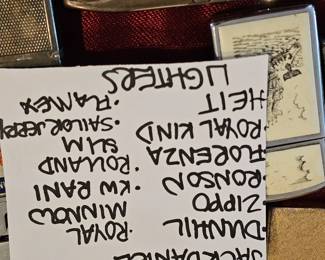 JACK DANIE
·DUNHIL
·ZIPPO
·RONSON
·FLORENZA
·ROYAL KIND
·HEIT
·ROYAL
MINNOW
·KW RANI
·ROLLAND
SLIM
·SAILOR JERRY
·FLAMEX
LIGHTERS